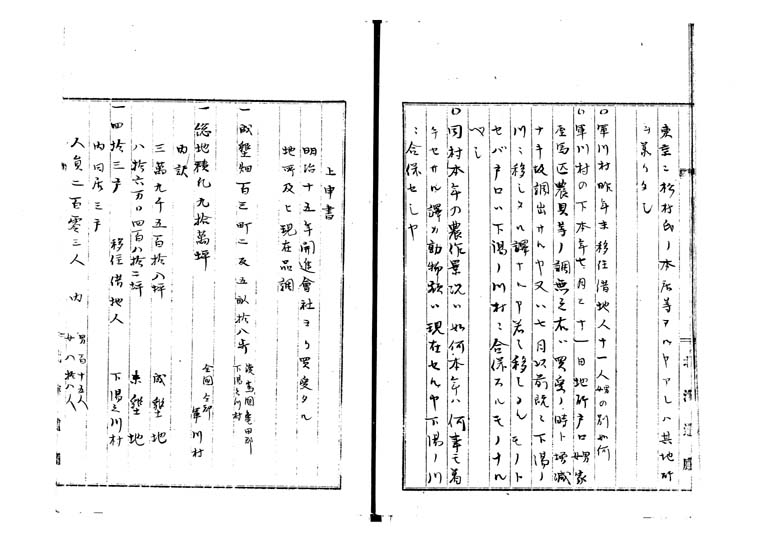 東京ニ於杉村氏ノ本店等ヲルヤアレハ其地所
ヲ承リタシ
〇軍川村昨年末移住借地人十一人姓ノ別如何
〇軍川村ノ下本年七月三十一日地所戸口
馬匹農具等ノ調無之右ハ買受ノ時ト増減
ナキ故調出サルヤ又ハ七月以前既ニ下湯ノ
川ニ移シタル譯ナルヤ若シ移シタルモノト
セバ戸口ハ下湯ノ川村ニ合併スルモノナル
ベシ
〇同村本年ノ農作景況ハ如何本年ハ何事モ着
手セサル譯カ動物類ハ現在セルヤ下湯ノ川
ニ合併セシヤ
上申書
明治十五年開進會社ヨリ買受タル
地所及ヒ現在品調
一成墾畑百三町二反五畝拾八歩
渡島國亀田郡
下湯之川村
一総地積凡九拾萬坪
全國全郡
軍川村
内訳
三萬九千五百拾八坪 成墾地
八拾六万〇四百八拾二坪 未墾地
一四拾三戸 移住借地人 下湯之川村
内同居三戸
人員二百零三人 内
男百十五人
女八拾八人